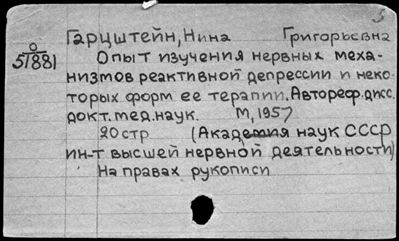 Гарцштейн, Нина Григорьевна
О
51881
Опыт изучения нервных меха-
низмов реактивной депрессии и неко-
торых форм ее терапии. Автореф. дисс.
докт. мед. наук. М, 1957
20 стр (Академия наук СССР
ин-т высшей нервной деятельности)
На правах рукописи